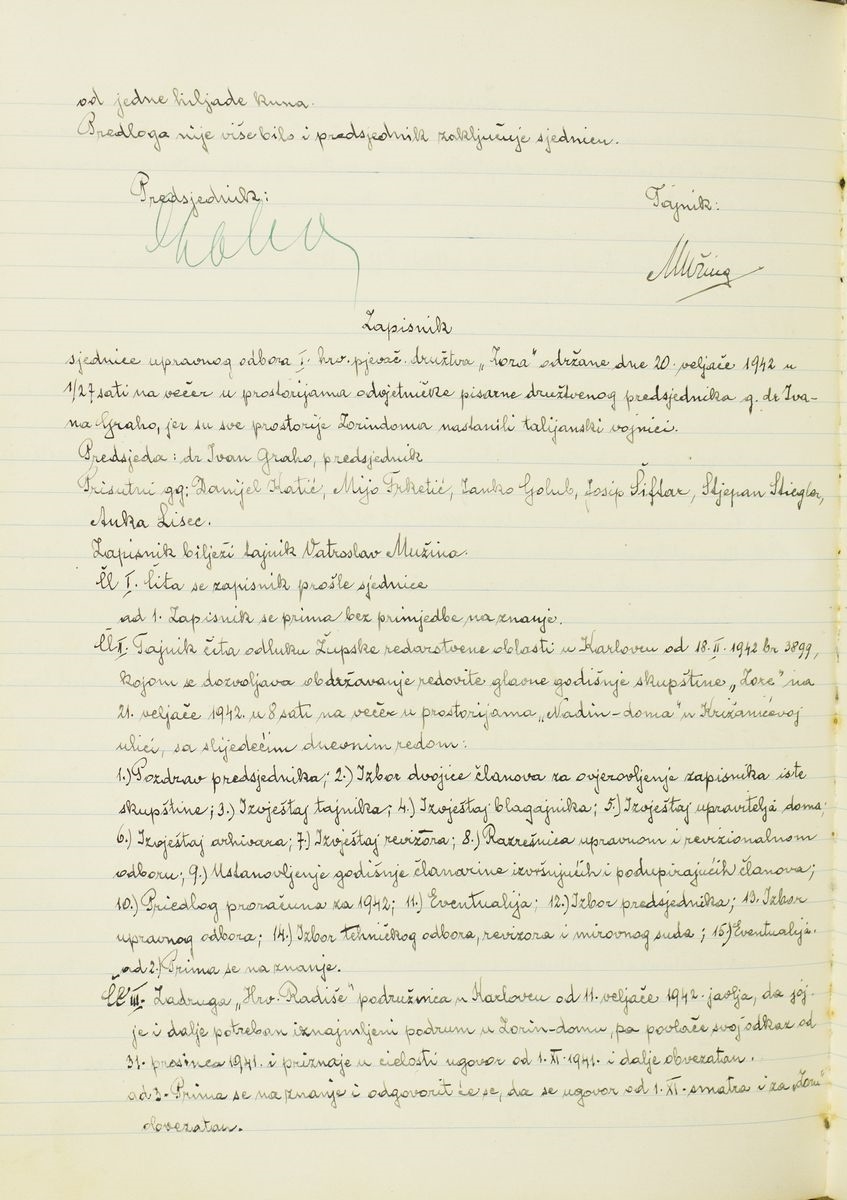 od jedne hiljade kuna.
Predloga nije više bilo i predsjednik zaključuje sjednicu.
Predsjednik:
Tajnik:
Mužina
Zapisnik
sjednice upravnog odbora I. hrv. pjevač. družtva „Zora" održane dne 20. veljače 1942 u
1/2 7 sati na večer u prostorijama odvjetničke pisarne družtvenog predsjednika g. dr Iva-
na Graho, jer su sve prostorije Zorindoma nastanili talijanski vojnici.
Predsjeda: dr Ivan Graho, predsjednik
Prisutni gg: Danijel Katić, Mijo Frketić, Janko Golub, Josip Šiftar, Stjepan Stiegler,
Anka Lisec.
Zapisnik bilježi tajnik Vatroslav Mužina.
Čl I. Čita se zapisnik prošle sjednice
ad 1. Zapisnik se prima bez primjedbe na znanje.
Čl II. Tajnik čita odluku Župske redarstvene oblasti u Karlovcu od 18. II. 1942 br 3899,
kojom se dozvoljava obdržavanje redovite glavne godišnje skupštine „Zore" na
21. veljače 1942. u 8 sati na večer u prostorijama „Nadin-doma" u Križanićevoj
ulici, sa slijedećim dnevnim redom:
1.) Pozdrav predsjednika; 2.) Izbor dvojice članova za ovjerovljenje zapisnika iste
skupštine; 3.) Izvještaj tajnika; 4.) Izvještaj blagajnika; 5.) Izvještaj upravitelja doma;
6.) Izvještaj arhivara; 7.) Izvještaj revizora; 8.) Razrešnica upravnom i revizionalnom
odboru; 9.) Ustanovljenje godišnje članarine izvršujućih i podupirajućih članova;
10.) Priedlog proračuna za 1942; 11.) Eventualija; 12.) Izbor predsjednika; 13. Izbor
upravnog odbora; 14.) Izbor tehničkog odbora, revizora i mirovnog suda; 15.) Eventualija.
ad 2.) Prima se na znanje.
Čl III. Zadruga „Hrv. Radiše" podružnica u Karlovcu od 11. veljače 1942. javlja, da joj
je i dalje potreban iznajmljeni podrum u Zorin-domu, pa povlače svoj odkaz od
31. prosinca 1941. i priznaje u cielosti ugovor od 1. XI. 1941. i dalje obvezatan.
ad 3. Prima se na znanje i odgovorit će se, da se ugovor od 1. XI. smatra i za „Zoru"
obvezatan.